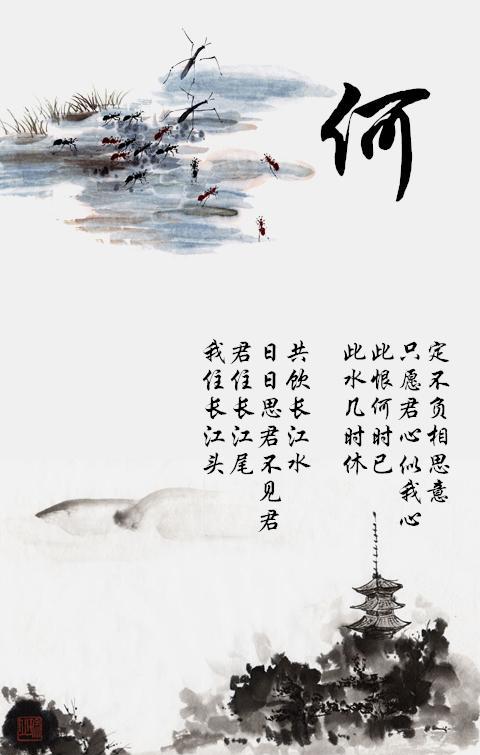 何
我住长江头
君住长江尾
日日思君不见君
共饮长江水
此水几时休
此恨何时已
只愿君心似我心
定不负相思意